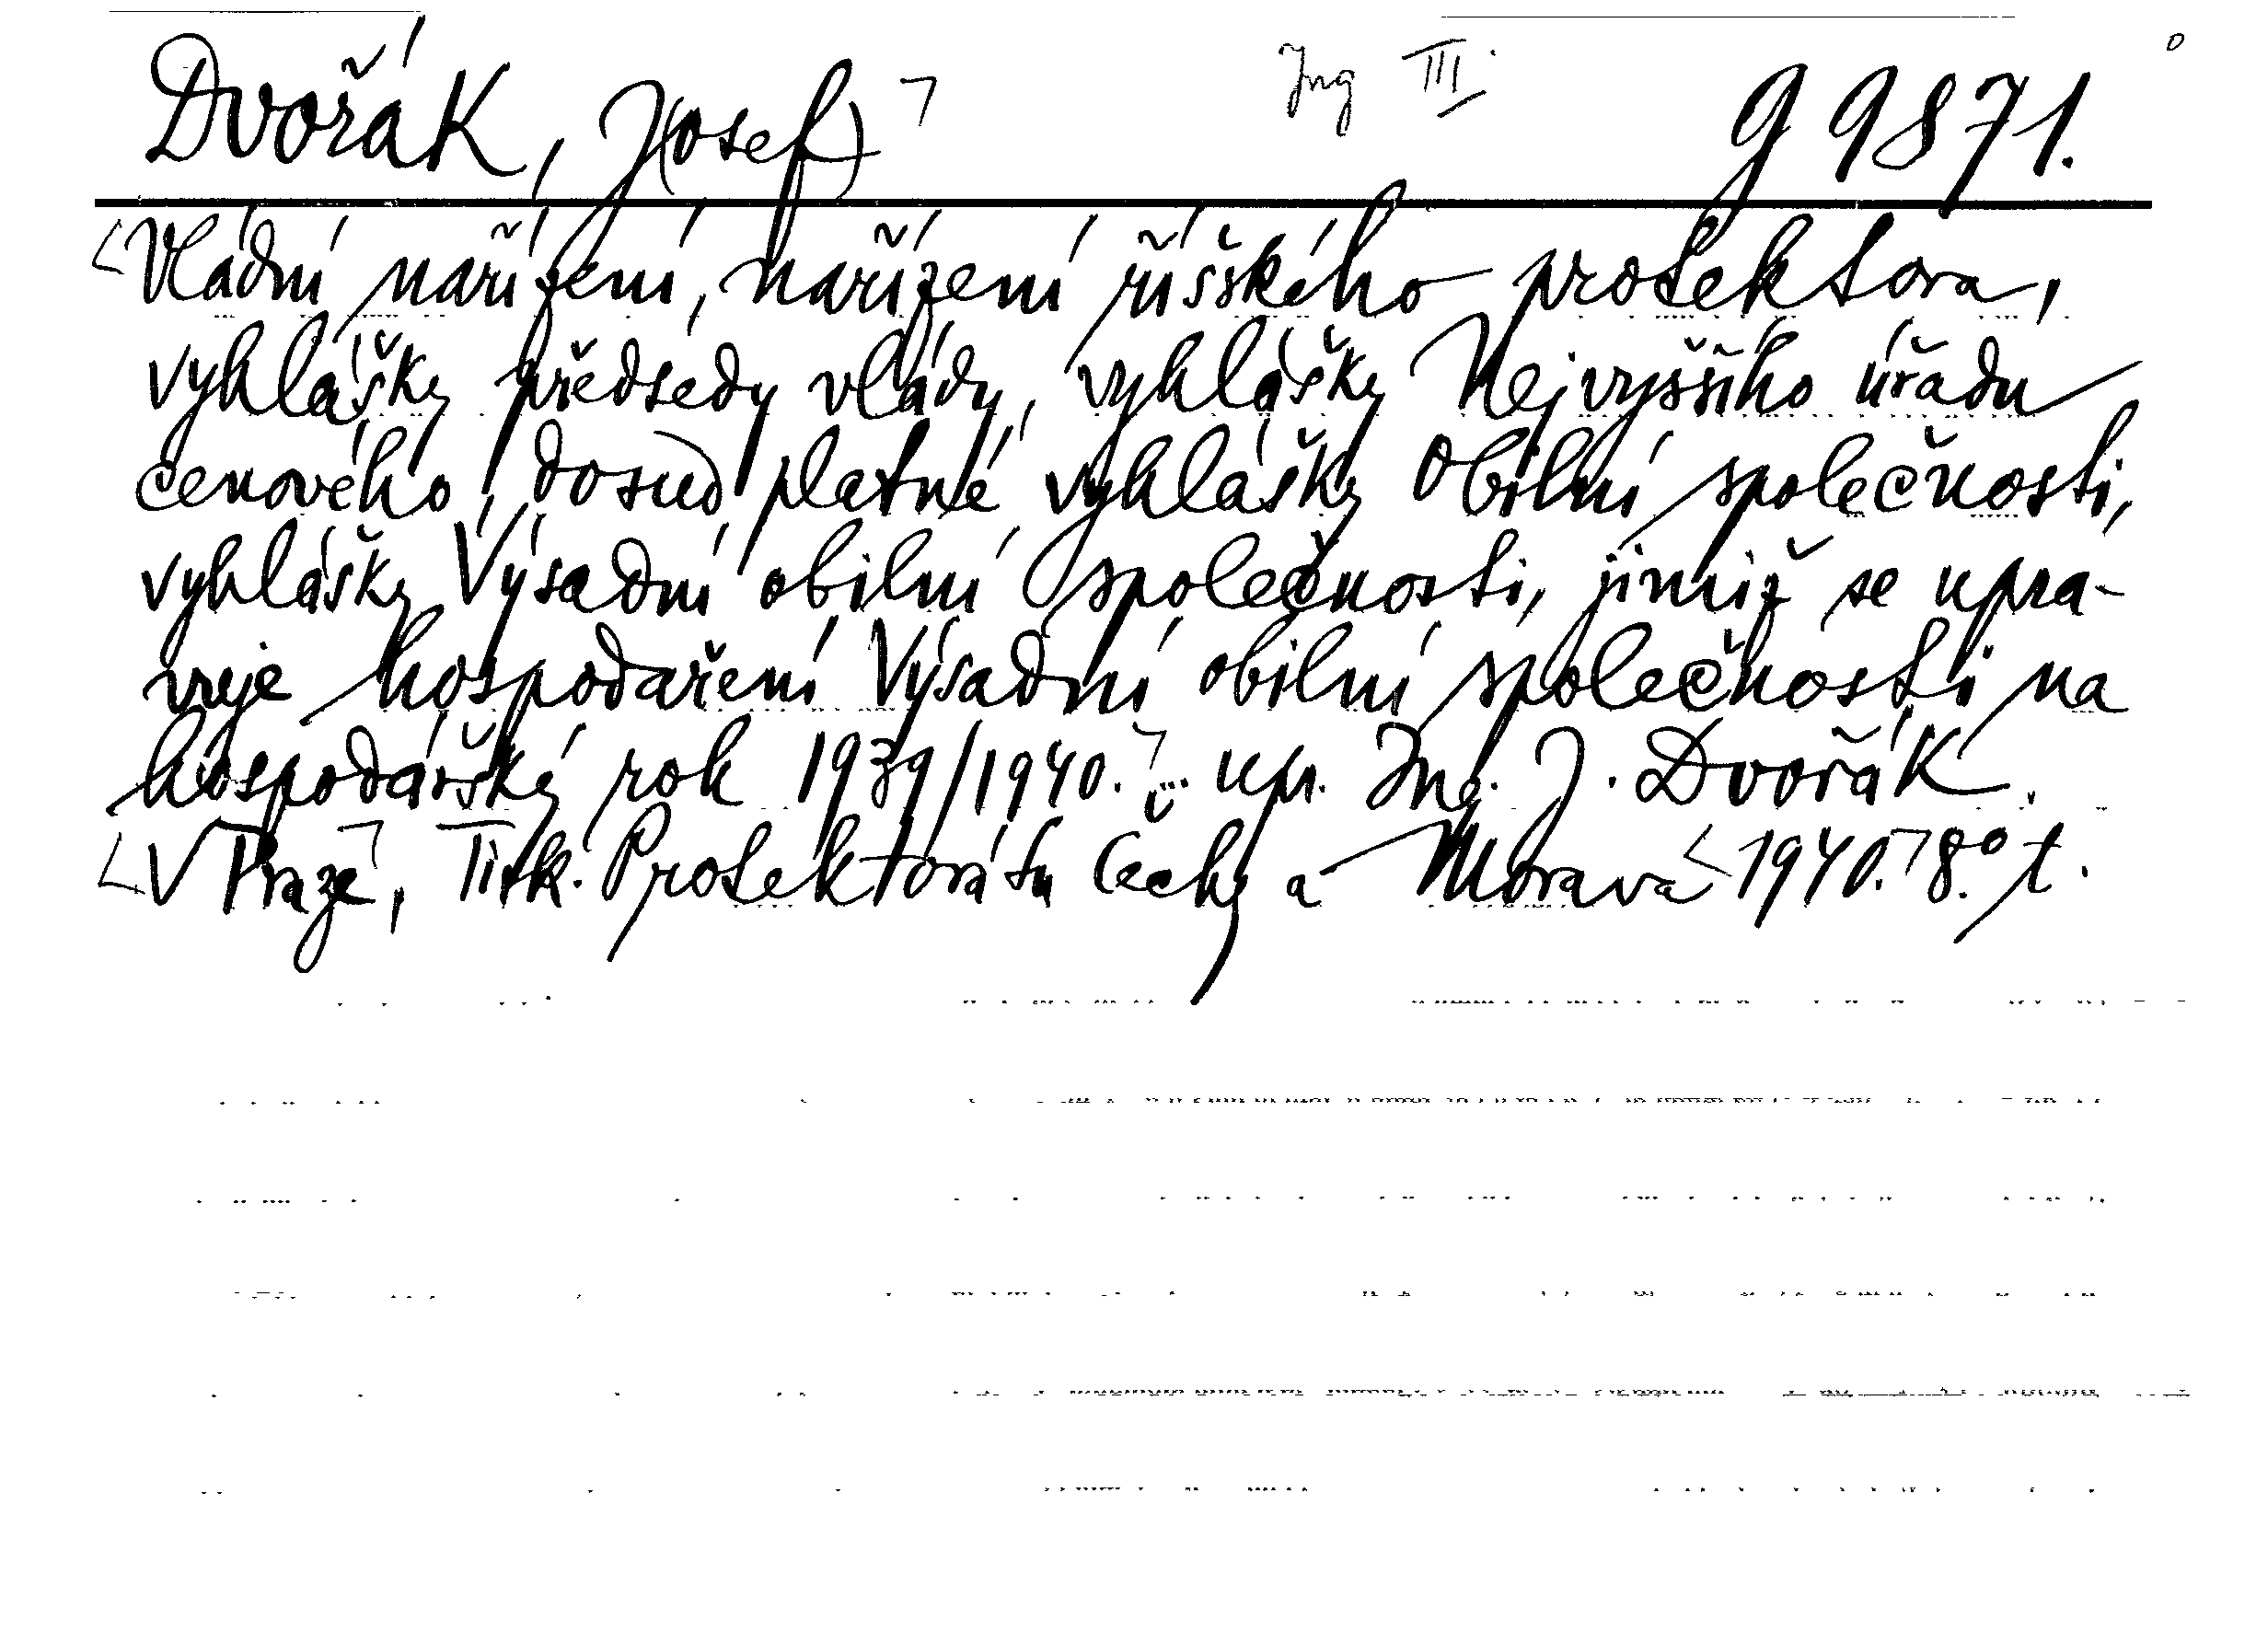 Dvořák, J(osef) Ing III. g 9871.
Vládní nařízení, nařízení říšského protektora,
vyhlášky předsedy vlády, vyhlášky Nejvyššího úřadu
cenového, dosud platné vyhlášky Obilní společnosti,
vyhlášky Výsadní obilní společnosti, jimiž se upra-
vuje hospodaření Výsadní obilní společnosti na
hospodářský rok 1939/1940. ... upr. Ing. J. Dvořák.
V Praze, Tisk. Protektorátu Čechy a Morava 1940. 8° t.